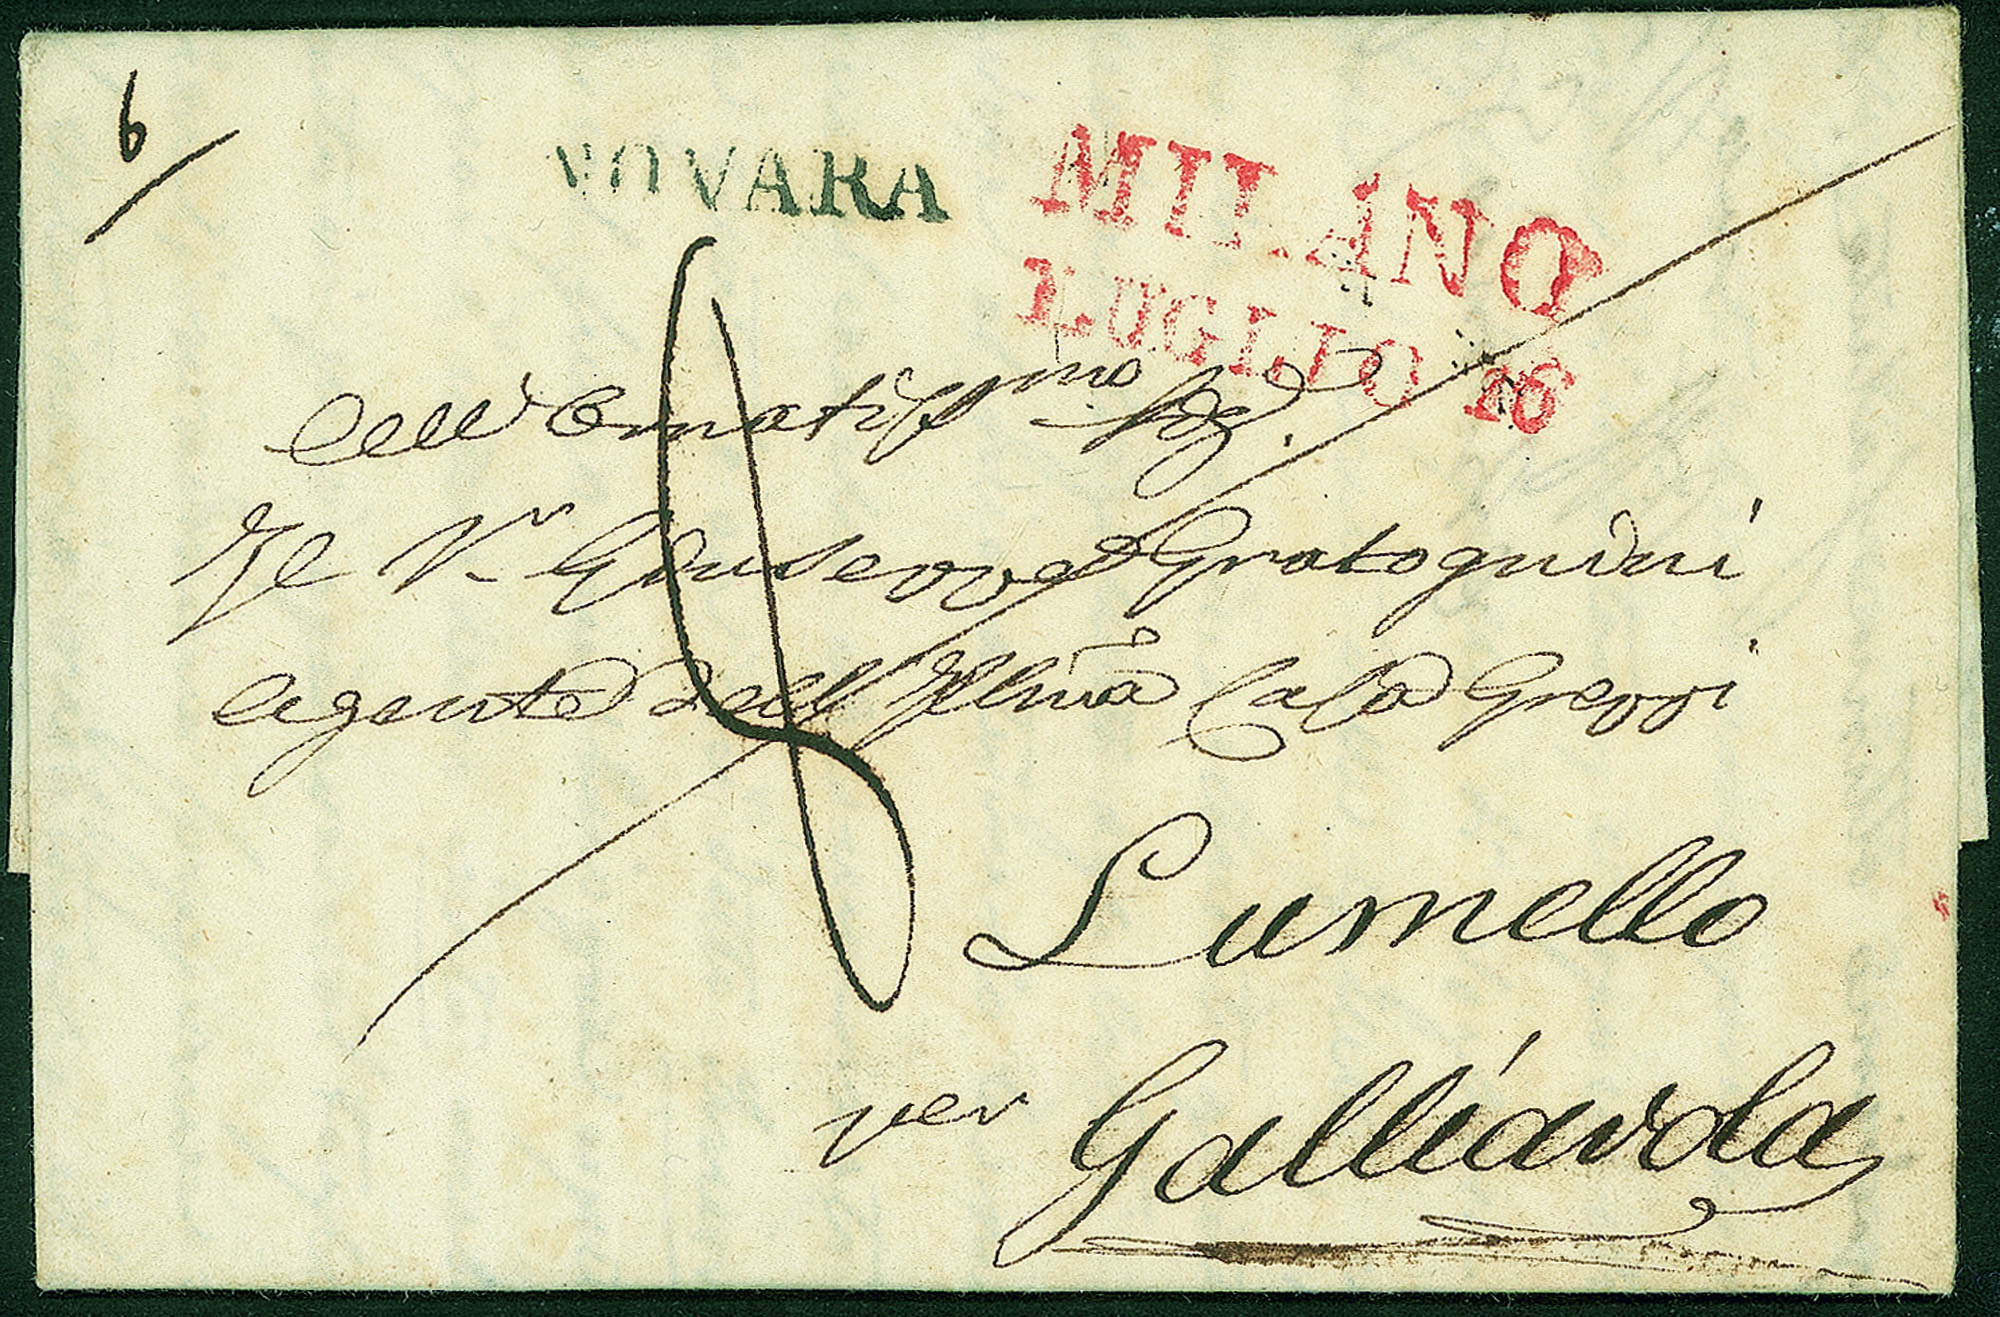 6
NOVARA
MILANO
LUGLIO 26
All'Ornatissmo Sig.
Il Sr Giuseppe Gratognini
Agente dell'Illma Casa Greppi
8
Lumello
per
Galliavola